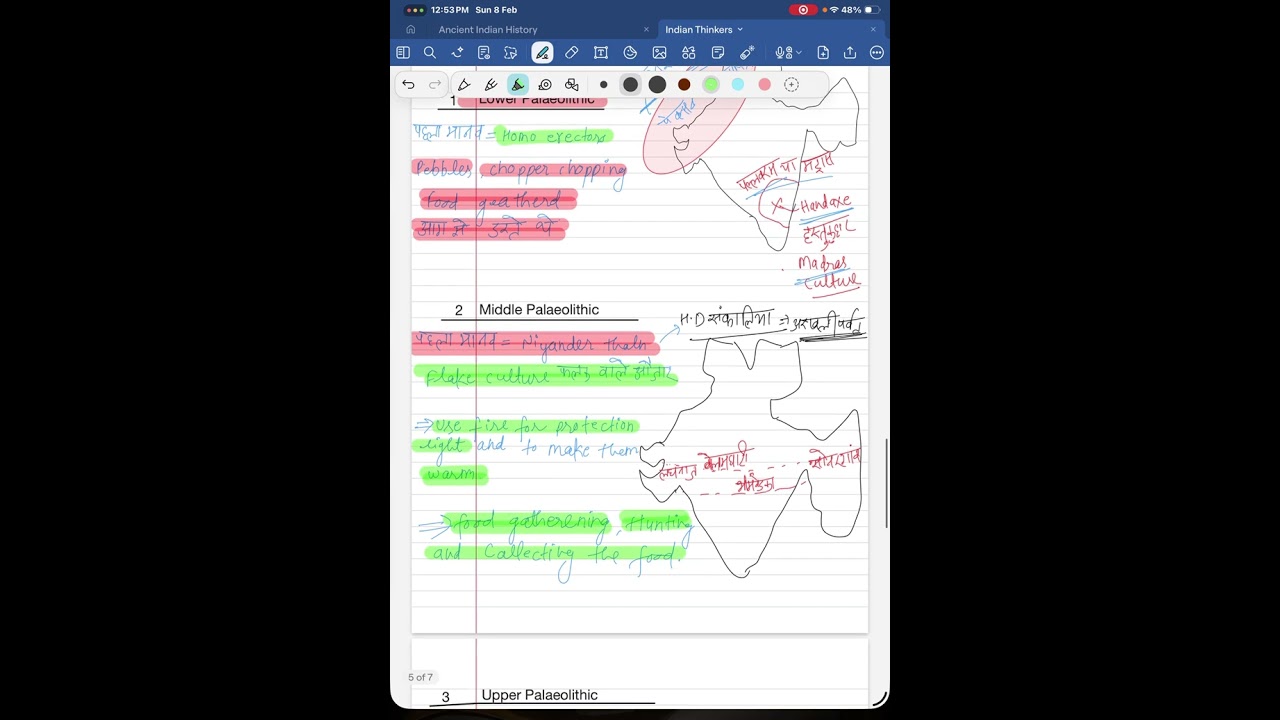 12:53 PM Sun 8 Feb
48%
Ancient Indian History
Indian Thinkers
1 Lower Palaeolithic
पहला मानव = Homo erectors
Pebbles, chopper chopping
food geatherd
आग से डरते थे
फलकम या मद्रास
Handaxe
हस्तकुठार
Madras
culture
2 Middle Palaeolithic
H.D संकालिया => अरावली पर्वत
पहला मानव = Niyander thaln
flake culture फलक वाले औजार
=> Use fire for protection
light and to make them
warm
=> food gatherening, Hunting
and Callecting the food.
5 of 7
3 Upper Palaeolithic